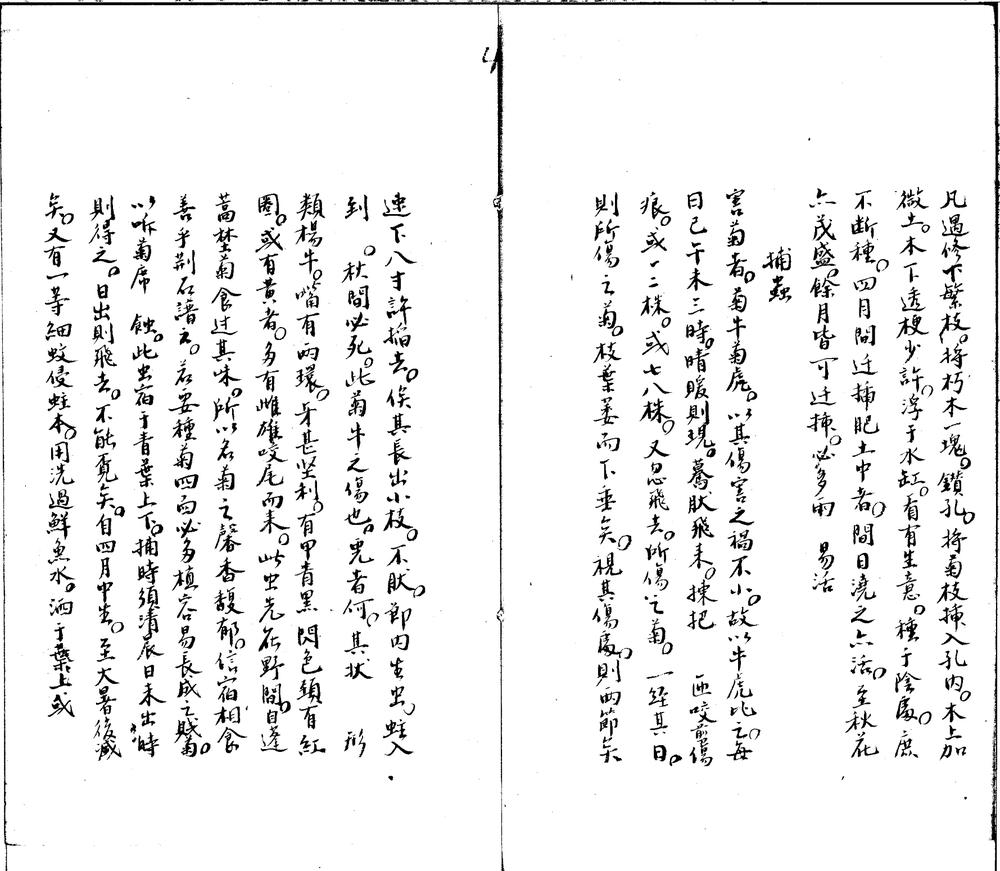 凡遇修下繁枝。將朽木一塊。鑽孔。將菊枝揷入孔內。木上加
微土。木下透梗少許。浮于水缸。看有生意。種于陰處。庶
不断種。四月間迁揷肥土中者。間日澆之亦活。至秋花
亦茂盛。餘月皆可迁揷。必多雨　易活
捕蟲
害菊者。菊牛菊虎。以其傷害之禍不小。故以牛虎比之。每
日已午未三時。晴暖則現。驀肰飛来。揀把　咂咬煎傷
痕。或一二株。或七八株。又忽飛去。所傷之菊。一経其日。
則所傷之菊。枝葉萎而下垂矣。視其傷處。則両節矣
速下八寸許掐去。俟其長出小枝。不肰。節内生虫。蛀入
到　。秋間必死。此菊牛之傷也。虎者何。其状　形
類楊牛。嘴有両環。牙甚坚利。有甲青黑閃色頭有紅
圈。或有黄者。多有雌雄咬尾而来。此虫先在野間。自蓬
蒿埜菊食过其味。所以名菊之馨香馥郁。信宿相食
善乎荆石譜云。若要種菊四面必多植容易長成之賊菊。
以哌菊席　蝕。此虫宿于青葉上下。捕時須清辰日未出時
則得之。日出則飛去。不能覔矣。自四月中生。至大暑後減
矣。又有一等細蚊侵蛀本。用洗過鮮魚水。洒于葉上或
4